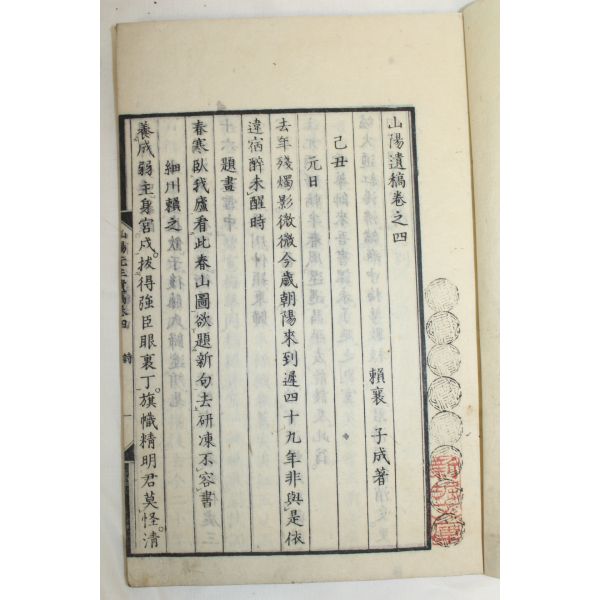 山陽遺稿卷之四
賴襄 子成著
己丑
元日
去年殘燭影微微今歲朝陽來到遲四十九年非與是依
違宿醉未醒時
題畫
春寒臥我廬看此春山圖欲題新句去研凍不容書
細川賴之
養成弱主身宮戍拔得強臣眼裏丁旗幟精明君莫怪淸
詩